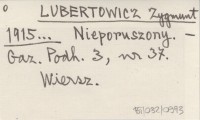 ° LUBERTOWICZ Zygmunt
1915... Nieporuszony. -
Gaz. Podh. 3, nr 37.
Wiersz.